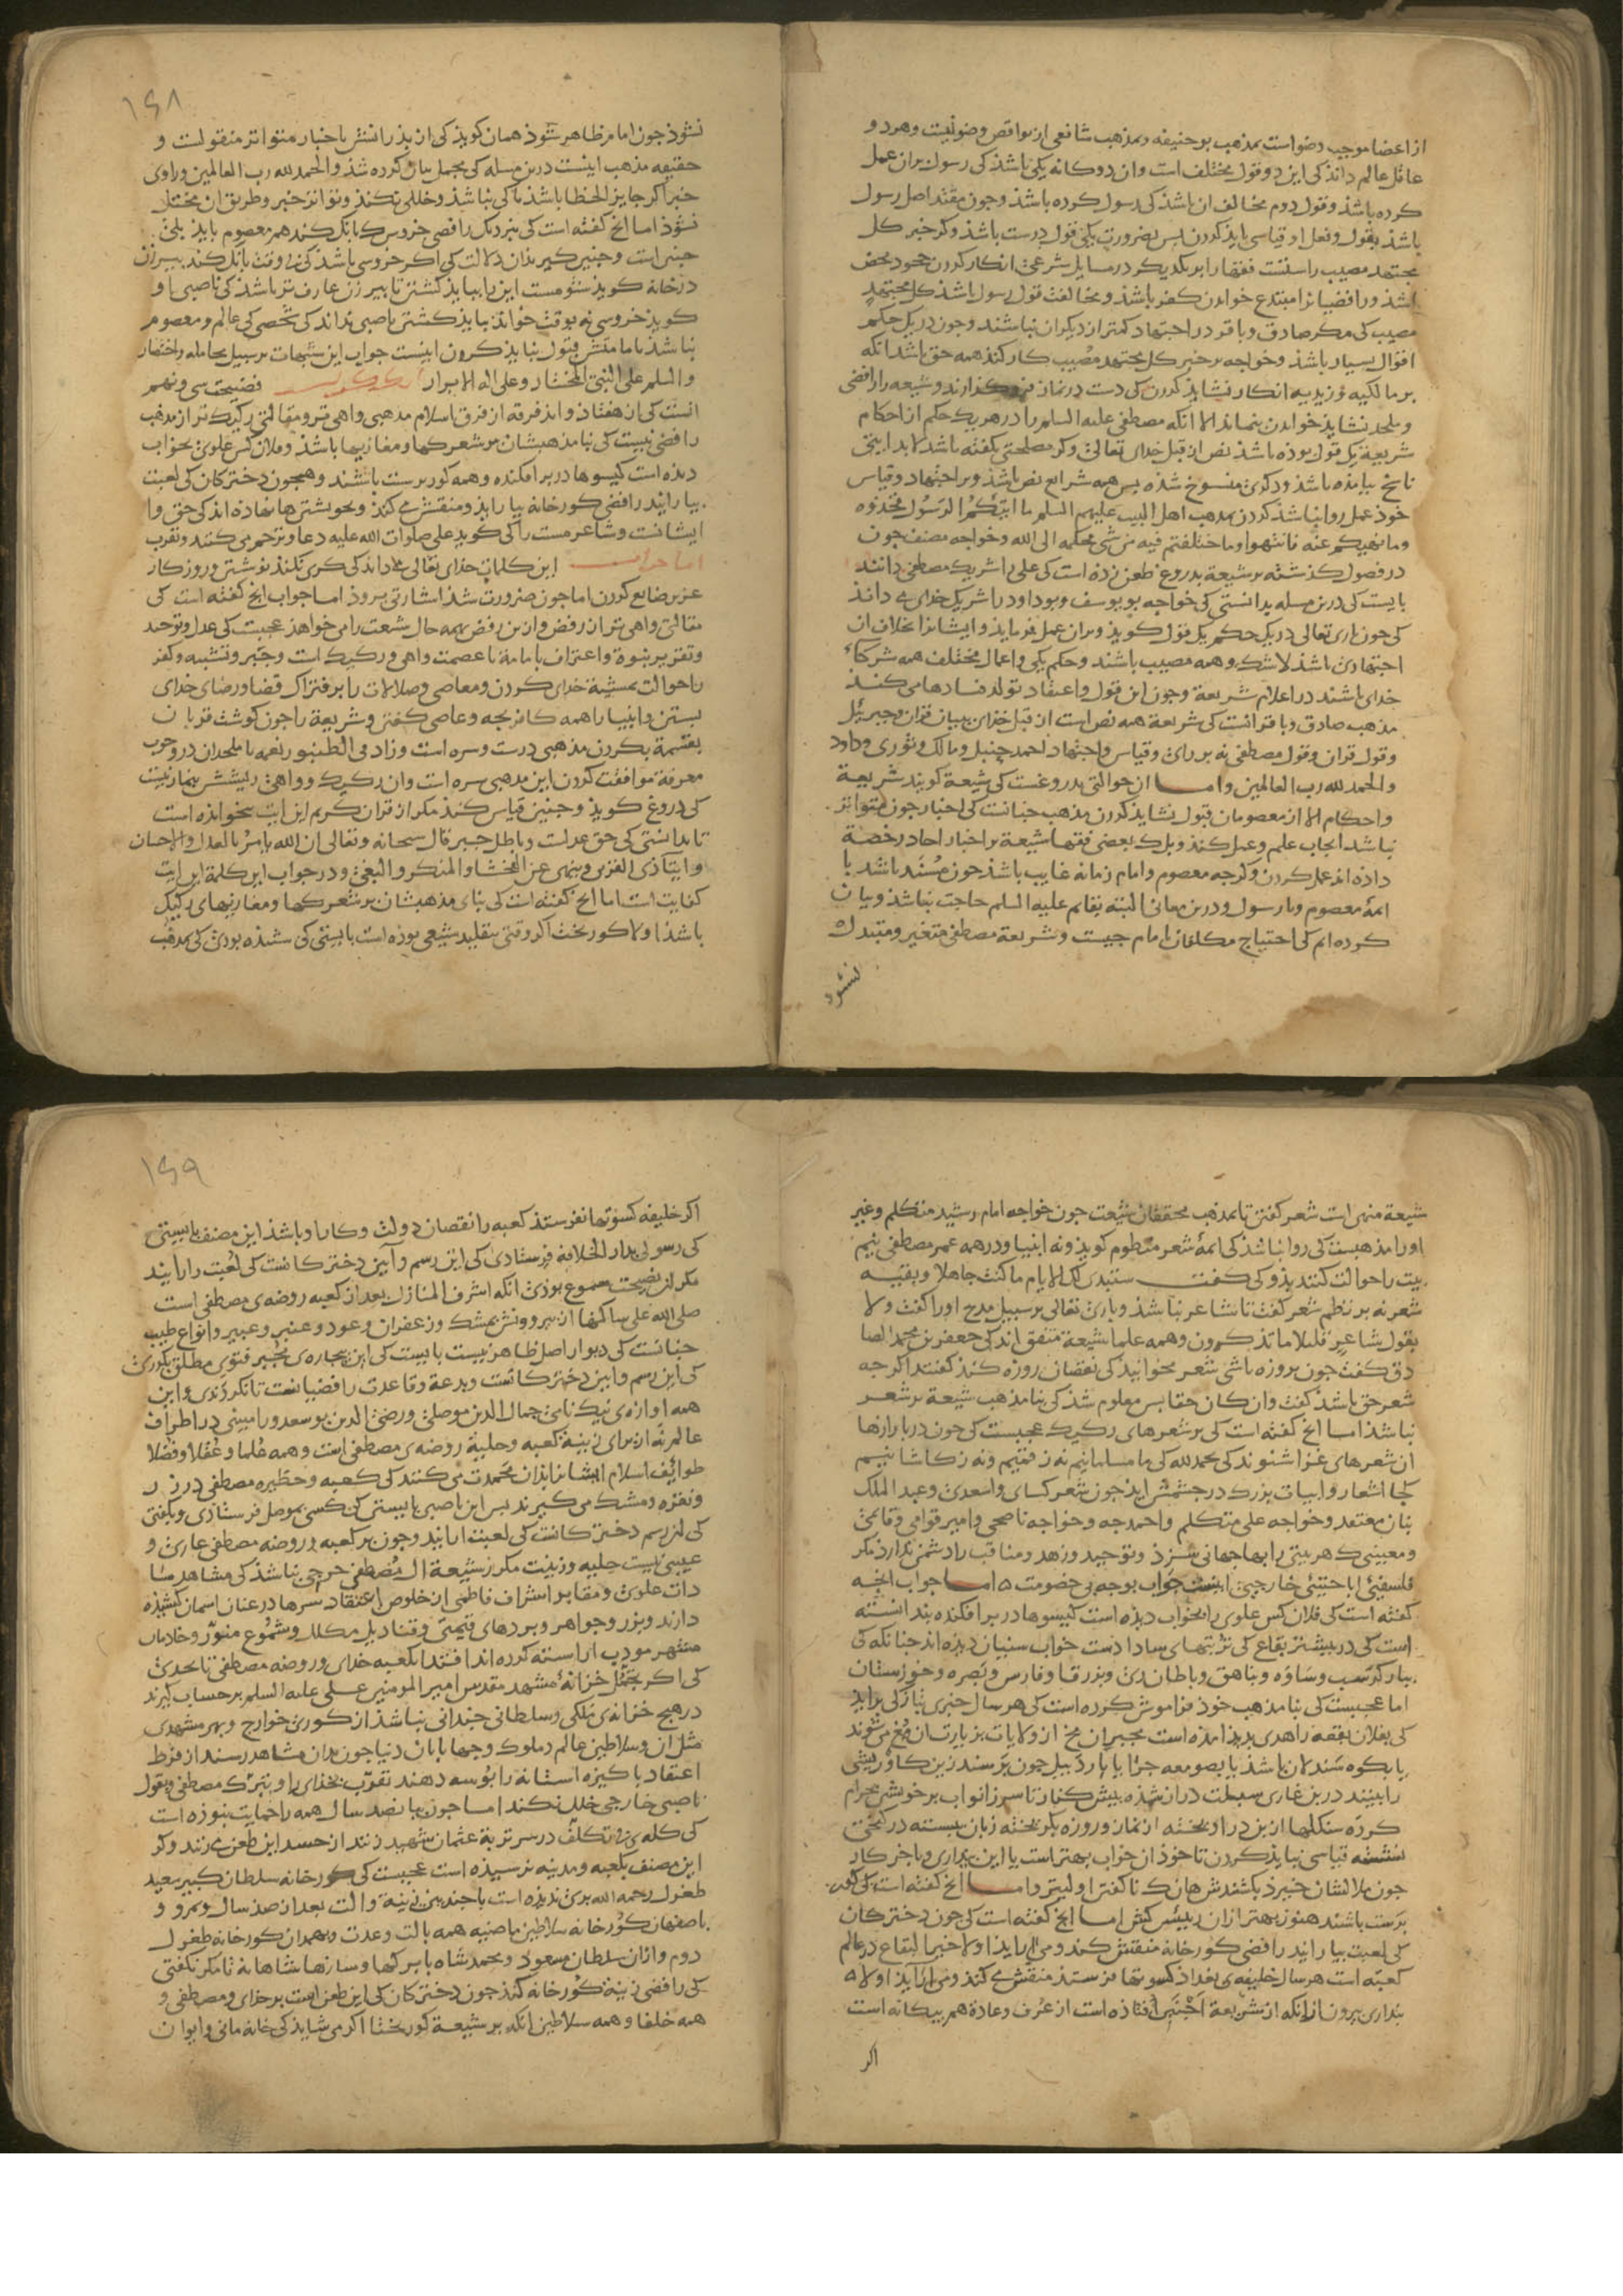 از اعضا موجب وضو است بمذهب بوحنیفه و بمذهب شافعی از نواقص وضو نیست و هر دو
عاقل عالم داند کی این دو قول مختلف است و ازن دوکانه یکی باشد کی رسول بران عمل
کرده باشد و قول دوم مخالف آن باشد کی رسول کرده باشد و چون مقتدا اصل رسول
باشد بقول و فعل او قیاسی باید کردن بس بضرورت یکی قول درست باشد و کر خبر کل
مجتهد مصیب راستست فقها را بر یکدیکر در مسایل شرعی انکار کردن جحود محض
باشد و رافضیانرا مبتدع خواندن کفر باشد و مخالفت قول رسول باشد کل مجتهد
مصیب کی مکر صادق و باقر در اجتهاد کمتر از دیکران نباشند و چون در یک حکم
اقوال بسیار باشد و خواجه بر خبر کل مجتهد مصیب کار کند همه حق باشد انکه
بر مالکیه و زیدیه انکار نشاید کردن کی دست در نماز فرو کذارند و شیعه را رافضی
و ملحد نشاید خواندن بنماند الا انکه مصطفی علیه السلم را در هر یک حکم از احکام
شریعة یک قول بوده باشد نص از قبل خدای تعالی و کر مصلحتی بکفته باشد لابد ایتی
ناسخ بیامده باشد و دکری منسوخ شده بس همه شرایع نص باشد و بر اجتهاد و قیاس
خود عمل روا نباشد کردن بمذهب اهل البیت علیهم السلم ما اتیکم الرسول فخذوه
وما نهیکم عنه فانتهوا وما اختلفتم فیه من شی فحکمه الی الله و خواجه مصنف چون
در فصول کذشته بر شیعة بدروغ طعن زده است کی علی را شریک مصطفی دانند
بایست کی درین مسله بدانستی کی خواجه بو یوسف و بو داود را شریک خدای می داند
کی چون باری تعالی در یک حکم یک قول کوید و بران عمل فرماید و ایشانرا بخلاف ان
اجتهادی باشد لاشک و همه مصیب باشند و حکم یکی و اعمال مختلف همه شرکاء
خدای باشند در اعلام شریعة و چون این قول و اعتقاد تولد فسادها می کند
مذهب صادق و باقر انست کی شریعة همه نص است از قبل خدای ببیان قران و جبرئیل
و قول قران و قول مصطفی نه بر رای و قیاس و اجتهاد احمد حنبل و مالک و ثوری و داود
والحمد لله رب العالمین و اما ان حوالتی بدروغست کی شیعة کویند شریعة
و احکام الا از معصومان قبول نشاید کردن مذهب چنانست کی اخبار چون متواتر
نباشد ایجاب علم و عمل نکند و بلک بعضی فقها شیعة بر اخبار احاد رخصة
داده اند عمل کردن و کرچه معصوم و امام زمانه غایب باشد چون مسند باشد با
ائمة معصوم و با رسول و درین معانی البته بقائم علیه السلم حاجت نباشد و بیان
کرده ام کی احتیاج مکلفان بامام چیست و شریعة مصطفی متغیر و مبتدل
نشود
۱۶۸
نشود چون امام ظاهر شود همان کوید کی از بدرانش باخبار متواتر منقولست و
حقیقه مذهب اینست درین مسله کی مجمل بیان کرده شد والحمد لله رب العالمین و راوی
خبر اکر جایز الخطا باشد باکی نباشد و خللی نکند و تواتر خبر و طریق ان مختل
نشود اما انچ کفته است کی بنزدیک رافضی خروس کا بانک کند هم معصوم باید بلی
چنین است و چنین کیر بدان دلالت کی اکر خروسی باشد کی نه بوقت بانک کند بیر زن
در خانه کوید شومست این را بباید کشتن تا بیر زن عارف تر باشد کی ناصبی او
کوید خروسی نه بوقت خواند بباید کشتن ناصبی نداند کی شخصی کی عالم و معصوم
نباشد بامامتش قبول نباید کردن اینست جواب این شبهات بر سبیل مجامله و اختصار
والسلم علی النبی المختار و علی اله الابرار فضیحت سی و نهم
انست کی از هفتاد و اند فرقه از فرق اسلام مذهبی واهی تر و مقالتی رکیک تر از مذهب
رافضی نیست کی بنا مذهبشان بر شعرکها و مغازیها باشد و فلان کس علوی بخواب
دیده است کیسوها در بر افکنده و همه کور برست باشند و همچون دخترکان کی لعبت
بیارایند رافضی کورخانه بیاراید و منقش می کند و بخویشتن ها نهاده اند کی حق وا
ایشانست و شاعر مست را کی کوید علی صلوات الله علیه دعا و ترحم می کنند و تقرب
اما جواب این کلمات خدای تعالی می داند کی کری نکند نوشتن و روزکار
عزیز ضایع کردن اما چون ضرورت شد اشارتی برود اما جواب انچ کفته است کی
مقالتی واهی تر از رفض و ازین رفض بهمه حال شیعت را می خواهد عجبست کی عدل و توحید
و تقریر نبوة و اعتراف بامامة با عصمت واهی و رکیک است و جبر و تشبیه و کفر
را حوالت بمشیة خدای کردن و معاصی و ضلالات را بر فتراک قضا و رضای خدای
بستن و انبیا را همه کافر بچه و عاصی کفتن و شریعة را چون کوشت قربان
بقسمة بکردن مذهبی درست و سره است و زاد فی الطنبور نغمه با ملحدان در وجوب
معرفة موافقت کردن این مذهبی سره است وان رکیک و واهی ریشش بنماز نیست
کی دروغ کوید و چنین قیاس کند مکر از قران کریم این ایت نخوانده است
تا بدانستی کی حق عدلست و باطل جبر قال سبحانه و تعالی ان الله یامر بالعدل والاحسان
و ایتا ذی القربی و ینهی عن الفحشا والمنکر والبغی و در جواب این کلمة این ایت
کفایت است اما انچ کفته است کی بنای مذهبشان بر شعرکها و مغازیهای رکیک
باشد اولا کور بخت اکر وقتی بتقلید شیعی بوده است بایستی کی شنیده بودی کی بمذهب
شیعة منهی است شعر کفتن تا بمذهب محققان شیعت چون خواجه امام رشید متکلم و غیر
او را مذهبست کی روا نباشد کی ائمة شعر منظوم کویند و نه انبیا و در همه عمر مصطفی نیم
بیت را حوالت کنند بدو کی کفت ستبدی لک الایام ما کنت جاهلا و بقیه
شعر نه بر نظم شعر کفت تا شاعر نباشد و باری تعالی بر سبیل مدح او را کفت ولا
بقول شاعر قلیلا ما تذکرون و همه علما شیعة متفق اند کی جعفر بن محمد الصا
دق کفت چون بروزه باشی شعر مخوانید کی نقصان روزه کند کفتند اکر چه
شعر حق باشد کفت وان کان حقا بس معلوم شد کی بنا مذهب شیعة بر شعر
نباشد اما انچ کفته است کی بر شعرهای رکیک عجبست کی چون در بازارها
ان شعرهای غرا شنوند کی بحمد لله کی ما مسلمانیم نه ز قمیم و نه ز کاشانیم
کجا اشعار و ابیات بزرک در چشمش اید چون شعر کسای و اسعدی و عبد الملک
بنان معتقد و خواجه علی متکلم و احمدچه و خواجه ناصحی و امیر قوامی و قائمی
و معینی کی هر بیتی را بها جهانی سزد و توحید و زهد و مناقب را دشمن ندارد مکر
فلسفیی اباحتیی خارجیی اینست جواب بوجه بی خصومت اما جواب انچه
کفته است کی فلان کس علوی را بخواب دیده است کیسوها در بر افکنده بندانسته
است کی در بیشتر بقاع کی تربتهای سادات است خواب سنیان دیده اند چنانکه کی
بارکرسب و ساوه و بناهق و باطان ری و بزرقا و فارس و بصره و خوزستان
اما عجبست کی بنا مذهب خود فراموش کرده است کی هر سال خبری بتازکی براید
کی بفلان بقعه زاهدی بدید امده است مجبران مخ از ولایات بزیارت ان مغ می شوند
یا بکوه سندلان باشد یا بصومعه جرا یا باردبیل چون برسند زین کاوریشی
را ببینند در بن غاری سبلت دراز شده بیش کنار تا سر زانو اب بر خویشتن حرام
کرده سنکلها از بن در اویخته از نماز و روزه بکریخته زبان ببسته در کنجی
نشسته قیاسی نباید کردن تا خود ازن خواب بهتر است یا این بیداری و باخر کار
چون ملا لشان خبرد بکشندش هانک ناکفتن اولیتر و اما انچ کفته است کی کور
برست باشند هنوز بهتر ازان ریش کش اما انچ کفته است کی چون دخترکان
کی لعبت بیارایند رافضی کورخانه منقش کند و می اراید اولا خیر البقاع در عالم
کعبه است هر سال خلیفه ی بغداد کسوتها فرستد منقش می کند و می اراید اولا
بنداری بیرون ازانکه از شریعة اجنبی افتاده است از عرف و عادة هم بیکانه است
اکر
۱۶۹
اکر خلیفه کسوتها نفرستد کعبه را نقصان دولت و کار او باشد این مصنف بایستی
کی رسولی بدار الخلافه فرستادی کی این رسم و آیین دخترکانست کی لعبت را ارایند
مکر این نصیحت مسموع بودی انکه اشرف المنازل بعد از کعبه روضه ی مصطفی است
صلی الله علی ساکنها اندرونش بمشک و زعفران و عود و عنبر و عبیر و انواع طیب
چنانست کی دیوار اصل ظاهر نیست بایست کی این بیچاره ی مجبر فتوی مطلق بکردی
کی این رسم و ایین دخترکانست و بدعة و قاعدت رافضیانست تا نکردندی و این
همه اوازه ی نیک نامی جمال الدین موصلی و رضی الدین بو سعد ورامینی در اطراف
عالم نه از برای زینة کعبه و حلیة روضه ی مصطفی است و همه علما و عقلا و فضلا
طوایف اسلام ایشانرا بدان محمدت می کنند کی کعبه و حظیره مصطفی در زر
و نقره و مشک می کیرند بس این ناصبی بایستی کی کسی بموصل فرستادی و بکفتی
کی این رسم دخترکانست کی لعبت ارایند و چون بر کعبه و روضه مصطفی عاری و
عیبی نیست حلیه و زینت مکر از شیعة ال مصطفی حرجی نباشد کی مشاهد سا
دات علوی و مقابر اشراف فاطمی از خلوص اعتقاد سرها در عنان اسمان کشیده
دارند و بزر و جواهر و بردهای قیمتی و قنادیل مکلل و شموع منور و خادمان
متهر مودب اراسته کرده اند اقتدا بکعبه خدای و روضه مصطفی تا بحدی
کی اکر تجمل خزانة مشهد مقدس امیر المومنین علی علیه السلم بر حساب کیرند
در هیچ خزانه ی ملکی و سلطانی چندانی نباشد از کوری خوارج و بهر مشهدی
مثل ان و سلاطین عالم و ملوک و جهانیان دنیا چون بدان مشاهد رسند از فرط
اعتقاد باکیزه استانه را بوسه دهند تقرب بخدای را و بتبرک مصطفی و بقول
ناصبی خارجی خلل نکند اما چون بانصد سال همه را حمایت بنوده است
کی کله ی بتکلف در سر تربة عثمان شهید زنند از حسد این طعن می زند و کر
این مصنف بکعبه و مدینه نرسیده است عجبست کی کورخانه سلطان کبیر سعید
طغرل رحمه الله بری ندیده است با چندین زینة والت بعد از صد سال و بمرو و
باصفهان کورخانه سلاطین ماضیه همه بالت و عدت و بهمدان کورخانه طغرل
دوم و ازان سلطان مسعود و محمد شاه با برکها و سازها شاهانه تا مکر نکفتی
کی رافضی زینة کورخانه کند چون دخترکان کی این طعن است بر خدای و مصطفی و
همه خلفا و همه سلاطین انکه بر شیعة کور بختا اکر می شاید کی خانه مانی و ایوان